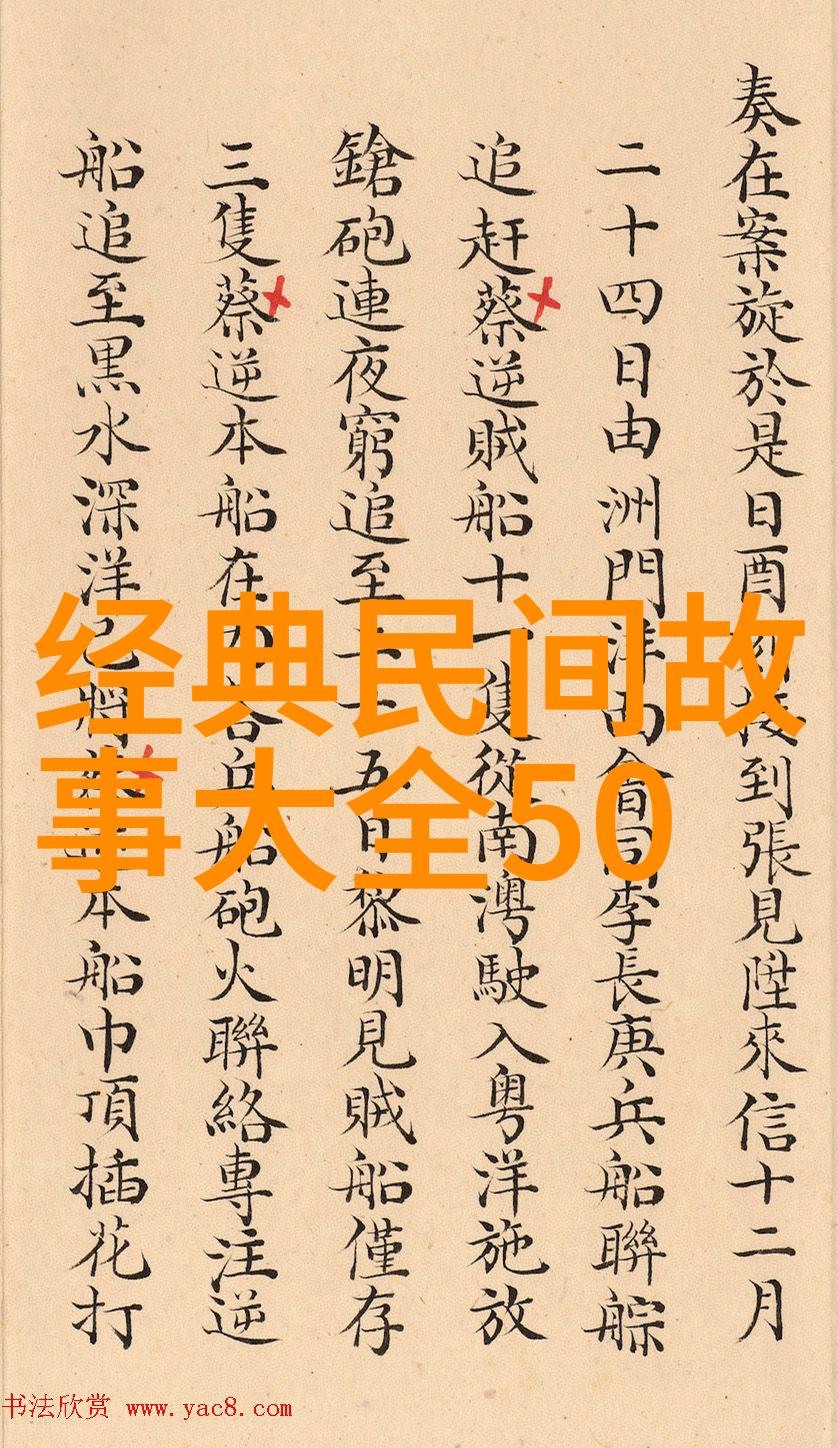 奏在案旋於是日酉刻接到張見陞來信十二月
二十四日由洲門洋面會同李長庚兵船聯䑸
追赶蔡逆賊船十一隻從南澳駛入粤洋施放
鎗砲連夜窮追至二十五日黎明見賊船僅存
三隻蔡逆本船在內各兵船砲火聯絡專注逆
船追至黒水深洋已將蔡逆本船巾頂插花打
经典民间故
事大全50
书法欣赏 www.yac8.com